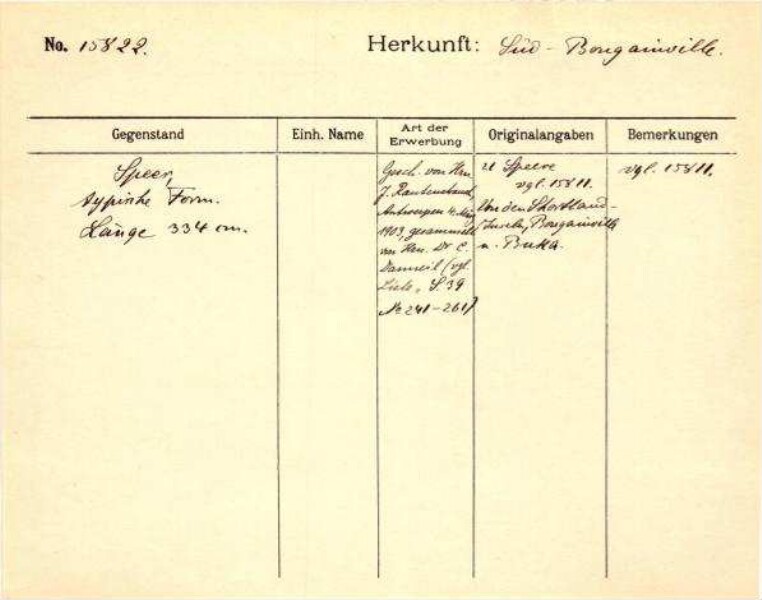 No. 15822.
Herkunft: Süd-Bougainville.
Gegenstand
Einh. Name
Art der Erwerbung
Originalangaben
Bemerkungen
Speer,
typische Form.
Länge 334 cm.
Gesch. von Hrn.
J. Rautenstrauch,
Antwerpen
1903, gesammelt
von Hrn. Dr. C.
(vgl.
Liste, S. 39
No 241-261)
21 Speere
vgl. 15811.
Von den Shortland-
Inseln, Bougainville
u. Buka.
vgl. 15811.